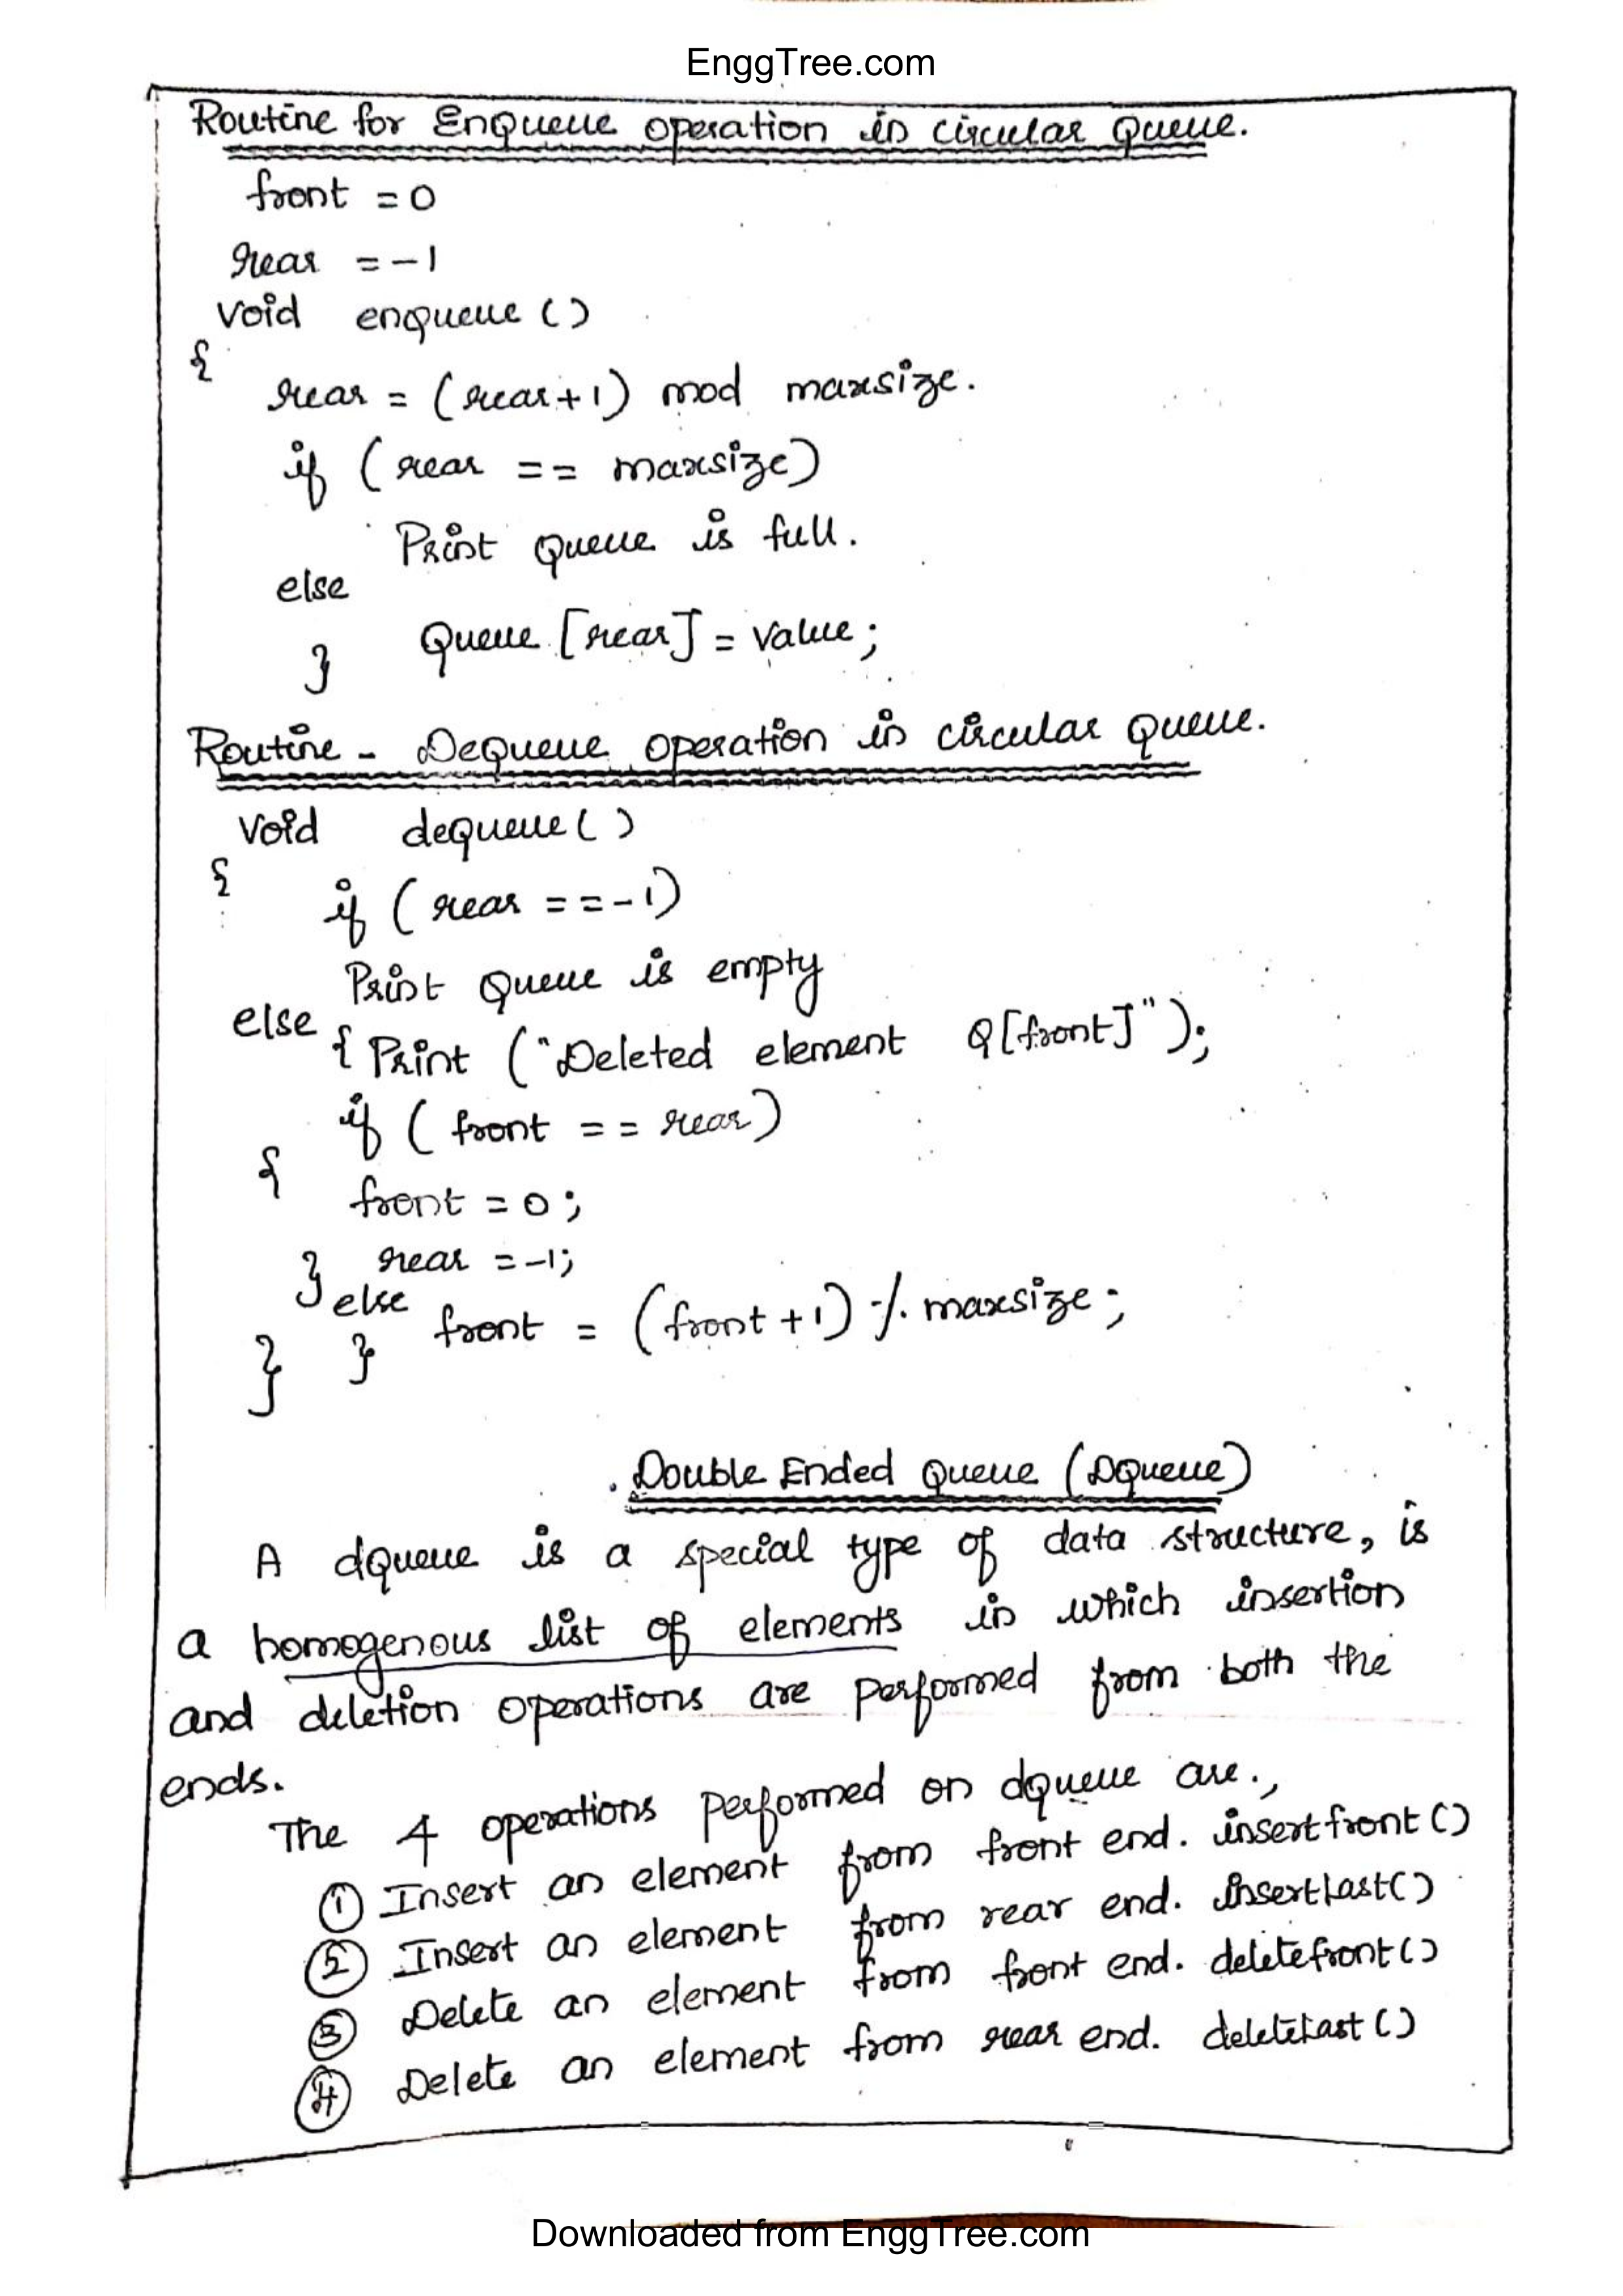 EnggTree.com
Routine for Enqueue operation in circular Queue.
front = 0
rear = -1
void enqueue ()
{
rear = (rear+1) mod maxsize.
if (rear == maxsize)
Print Queue is full.
else
Queue [rear] = value;
}
Routine - Dequeue operation in circular Queue.
void dequeue()
{
if (rear == -1)
Print Queue is empty
else { Print ("Deleted element Q[front]");
if (front == rear)
{
front = 0;
} rear = -1;
else front = (front+1) % maxsize;
} }
Double Ended Queue (DQueue)
A dqueue is a special type of data structure, is
a homogenous list of elements in which insertion
and deletion operations are performed from both the
ends.
The 4 operations performed on dqueue are.,
① Insert an element from front end. insertfront()
② Insert an element from rear end. insertlast()
③ Delete an element from front end. deletefront()
④ Delete an element from rear end. deletelast()
Downloaded from EnggTree.com